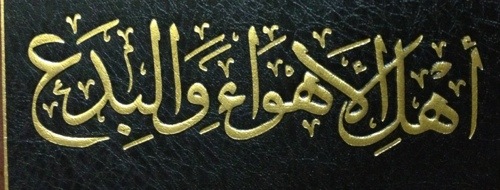 أهل الأهواء والبدع